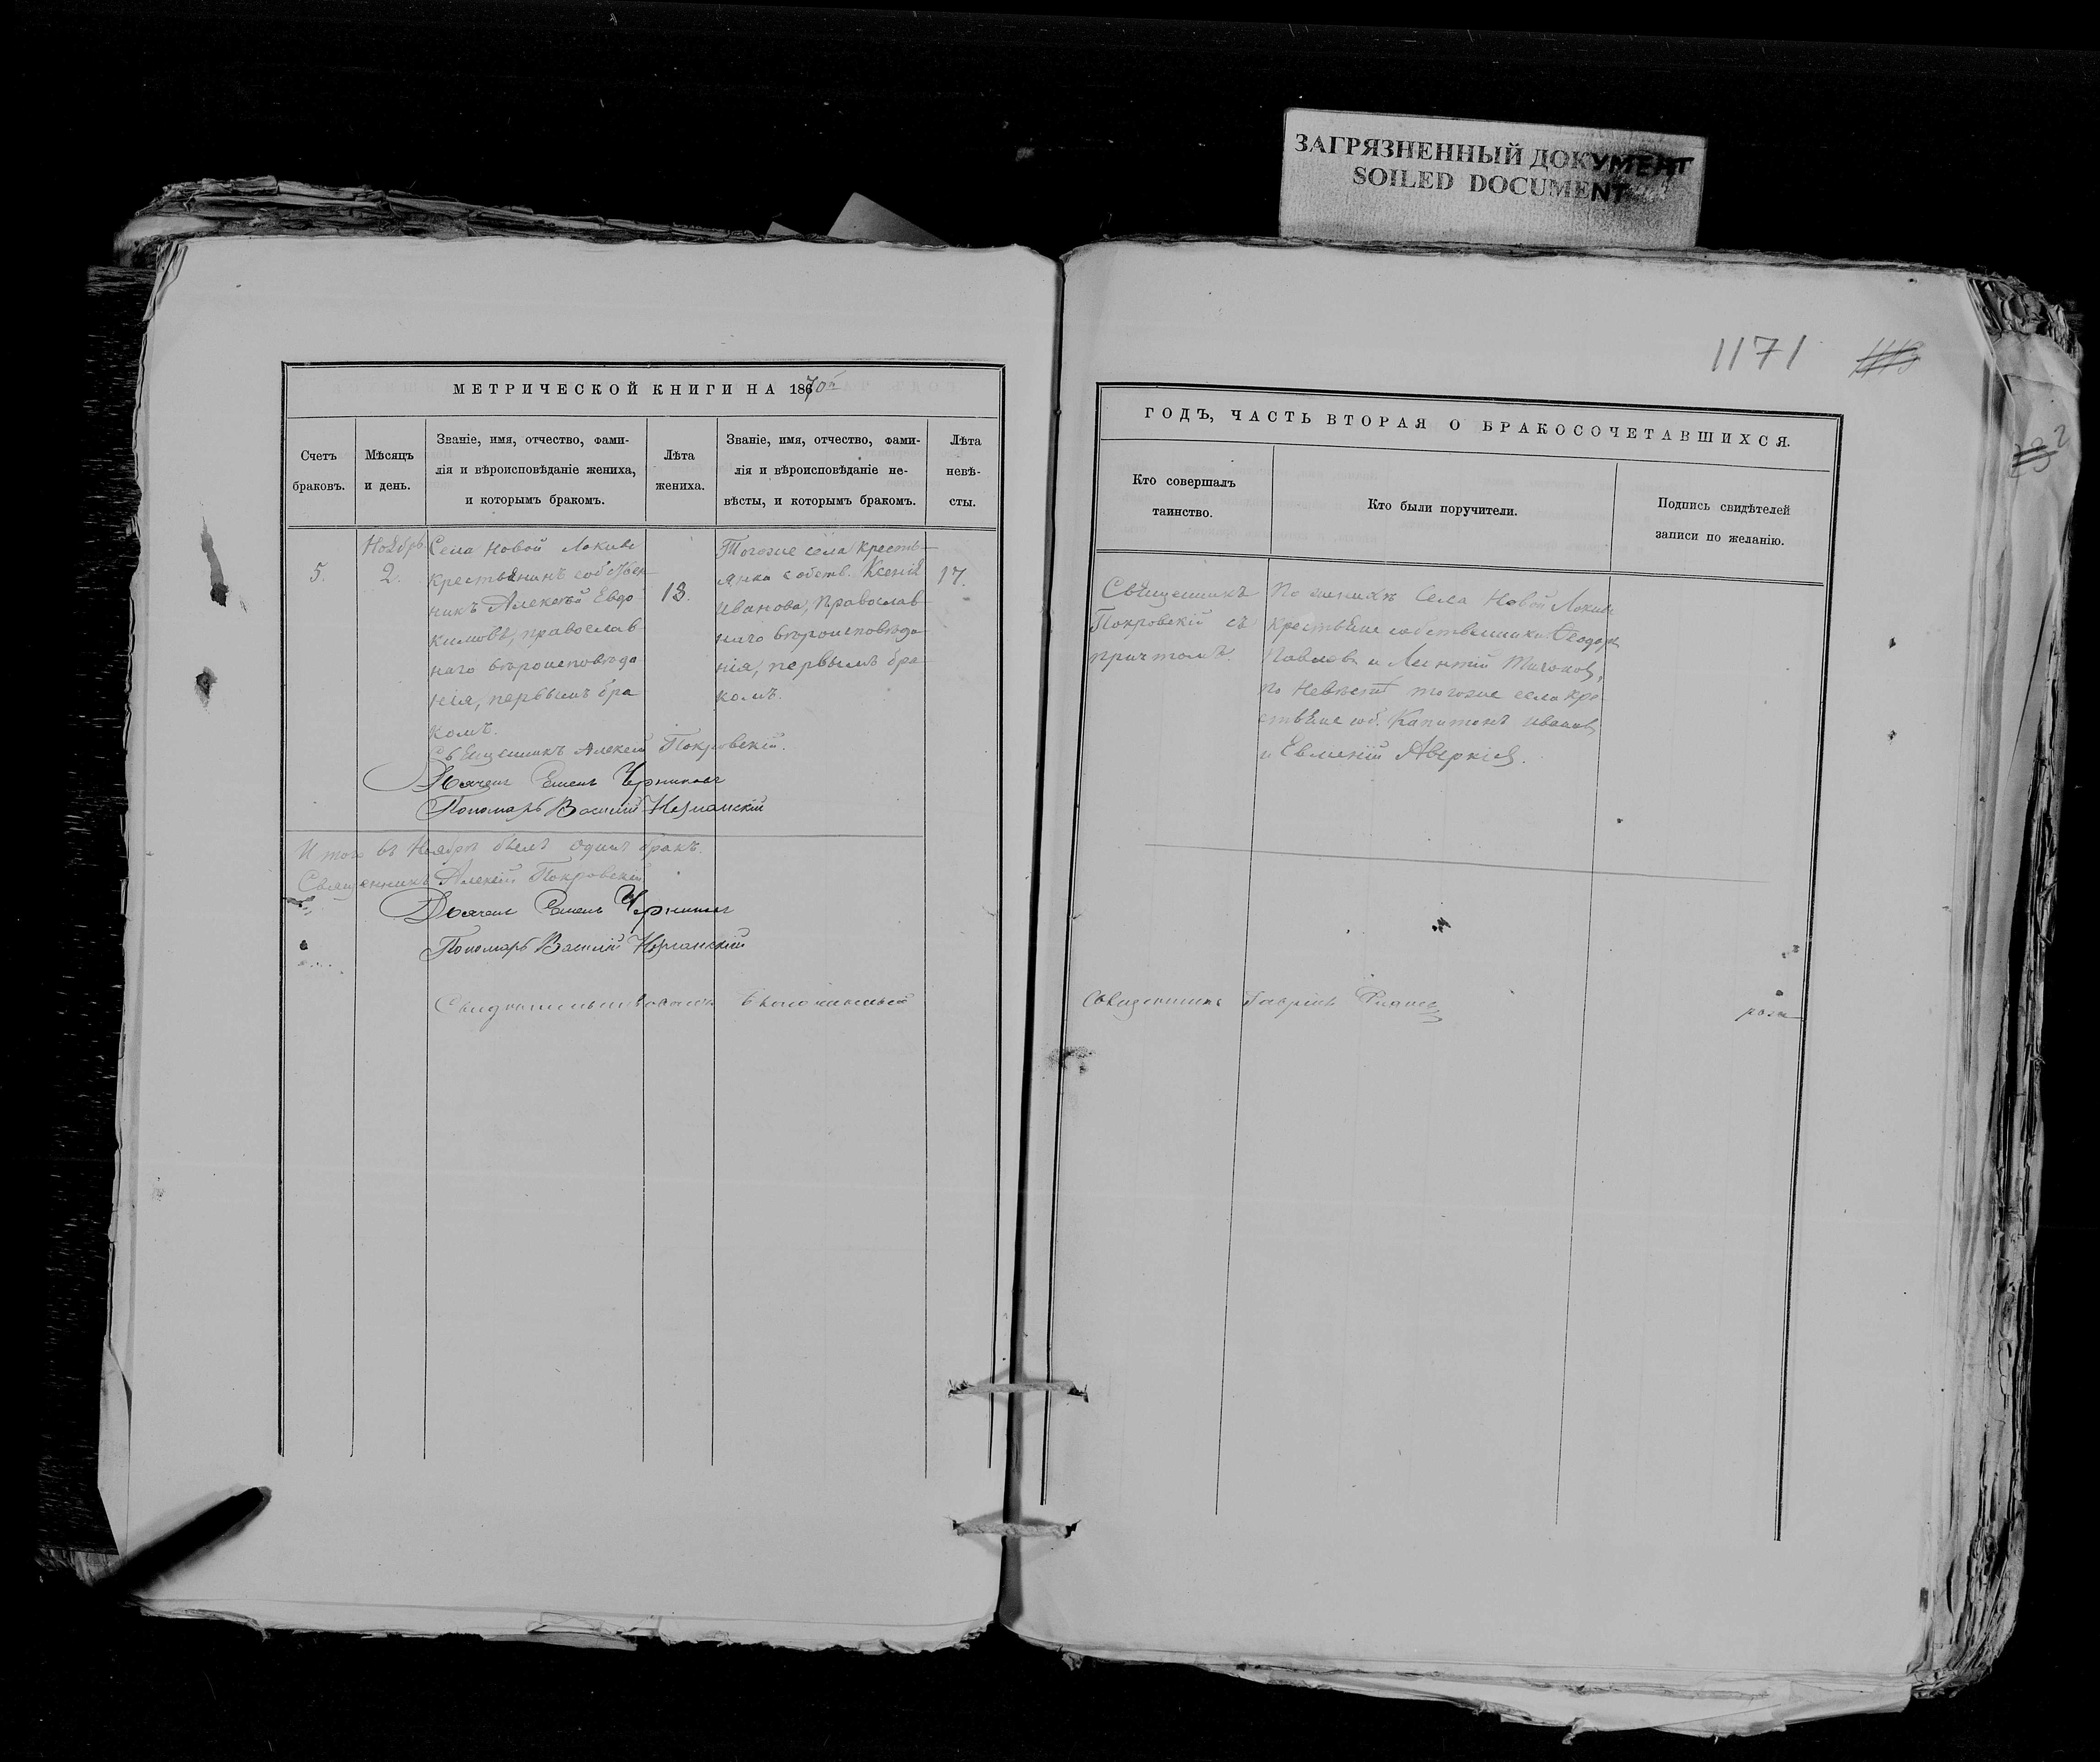 ЗАГРЯЗНЕННЫЙ ДОКУМЕНТ
SOILED DOCUMENT
1171
МЕТРИЧЕСКОЙ КНИГИ НА 1870й
Счетъ
браковъ.
Мѣсяцъ
и день.
Званіе, имя, отчество, фами-
лія и вѣроисповѣданіе жениха,
и которымъ бракомъ.
Лѣта
жениха.
Званіе, имя, отчество, фами-
лія и вѣроисповѣданіе не-
вѣсты, и которымъ бракомъ.
Лѣта
невѣ-
сты.
5.
Ноябрь
2.
Села Новой
крестьянинъ собствен
никъ Алексѣй Евдо
кимовъ, православ
наго вѣроисповѣда
нія, первымъ бра
комъ.
18.
Тогоже села кресть-
янка собств. Ксенія
Иванова, православ
наго вѣроисповѣда
нія, первымъ бра
комъ.
17.
Священникъ Алексѣй Покровскій.
Дьячекъ
Пономарь Василій
Итого въ Ноябрѣ былъ одинъ бракъ.
Священникъ Алексѣй Покровскій
Дьячекъ
Пономарь Василій
ГОДЪ, ЧАСТЬ ВТОРАЯ О БРАКОСОЧЕТАВШИХСЯ.
Кто совершалъ
таинство.
Кто были поручители.
Подпись свидѣтелей
записи по желанію.
Священникъ
Покровскій съ
причтомъ.
По женихѣ Села Новой
крестьяне собственники Ѳеодоръ
Павловъ и
по невѣстѣ тогоже села кре
стьяне соб. Капитонъ Ивановъ
и Евменій Аверкіев.
Священникъ Гавріилъ